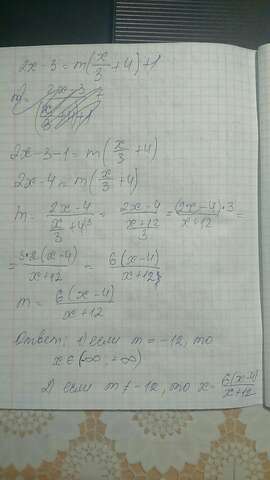 2x - 3 = m(x/3 + 4) + 1
2x - 3 - 1 = m(x/3 + 4)
2x - 4 = m(x/3 + 4)
m = (2x - 4)/(x/3 + 4^3) = (2x - 4)/((x + 12)/3) = ((2x - 4) · 3)/(x + 12) =
= (3 · 2(x - 4))/(x + 12) = 6(x - 4)/(x + 12)
m = 6(x - 4)/(x + 12)
Ответ: 1) если m = -12, то
x ∈ (-∞, +∞)
2) если m ≠ -12, то x = 6(x - 4)/(x + 12)